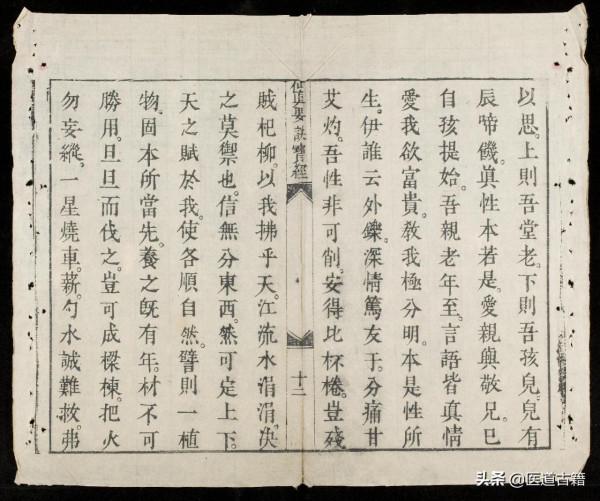 以思。上則吾堂老。下則吾孩兒。兒有
辰啼饑。眞性本若是。愛親與敬兄。已
自孩提始。吾親老年至。言語皆眞情
愛我欲富貴。教我極分明。本是性所
生。伊誰云外鑠。深情篤友于。分痛甘
艾灼。吾性非可削。安得比杯棬。豈殘
眞要訣寶經
十二
賊杞柳。以我拂乎天。江流水涓涓。决
之莫禦也。信無分東西。然可定上下。
天之賦於我。使各順自然。譬則一植
物。固本所當先。養之旣有年。材不可
勝用。旦旦而伐之。豈可成樑棟。把火
勿妄縱。一星燒車薪。勺水誠難救。弗
头条 @医道古籍